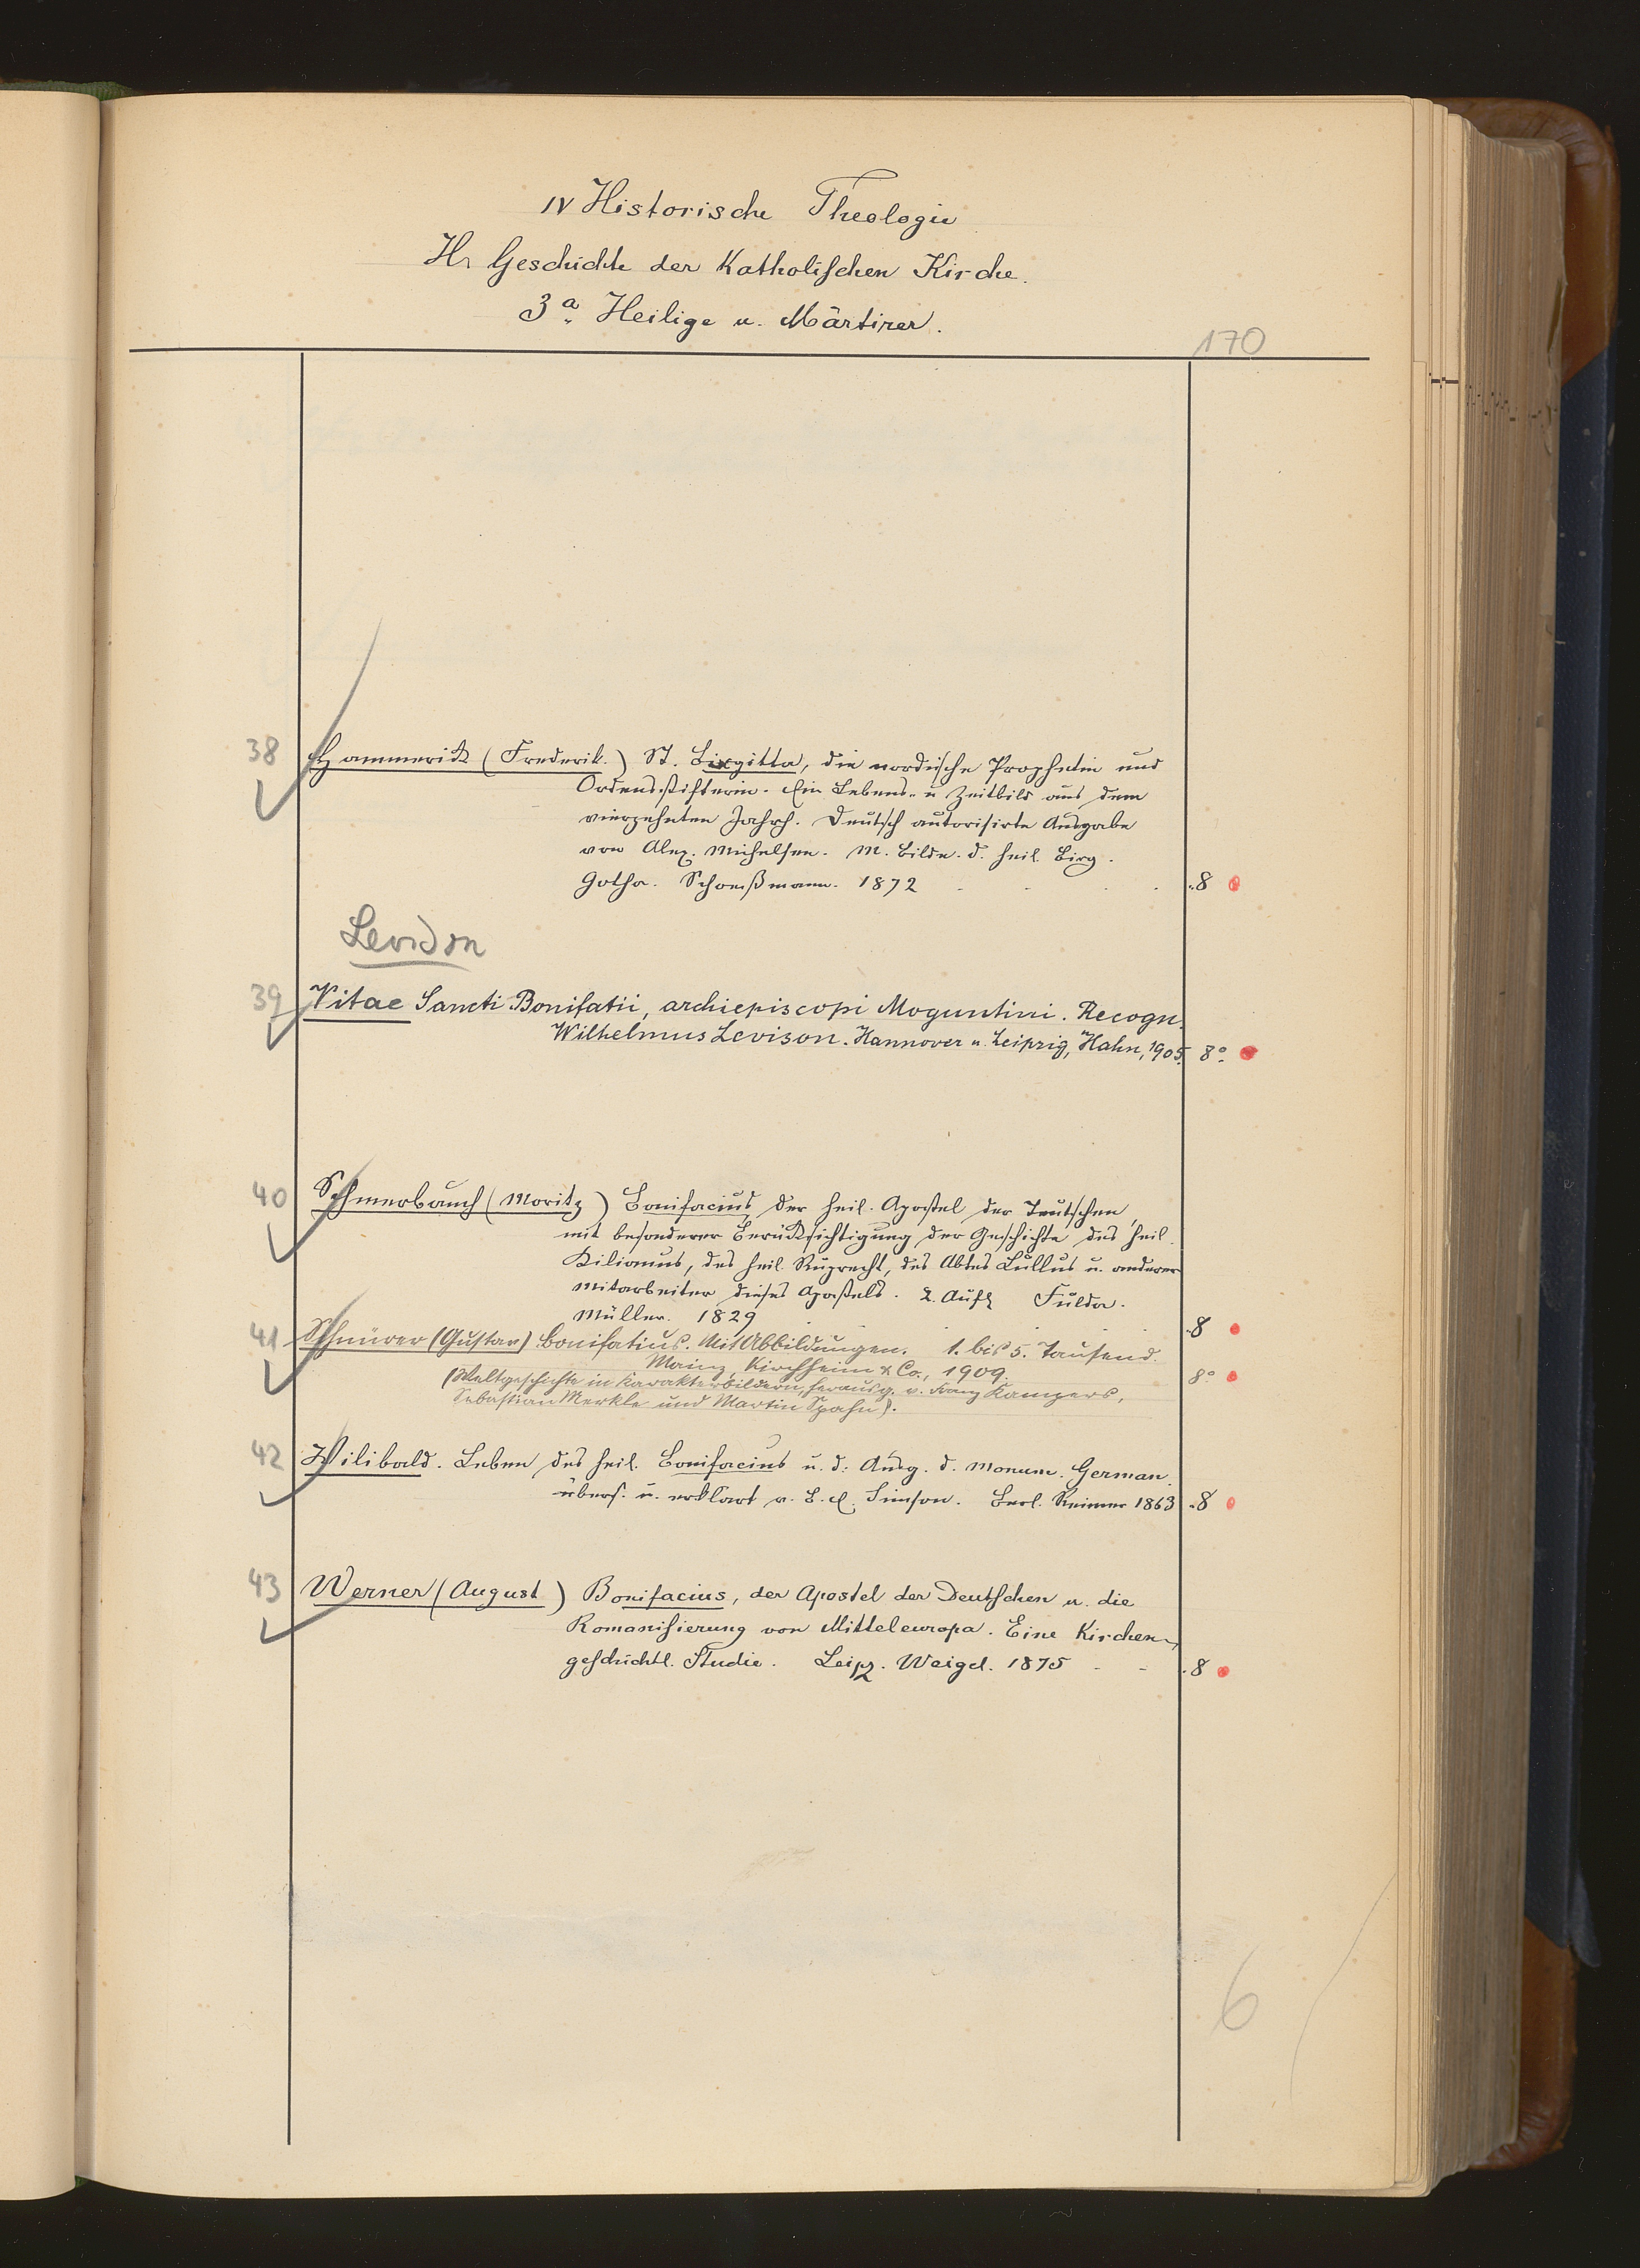 IV Historische Theologie
H. Geschichte der Katholischen Kirche.
3a. Heilige u. Märtirer.
170
38 Hammerich (Frederik.) St. Birgitta, die nordische Prophetin und
Ordensstifterin. Ein Lebens- u Zeitbild aus dem
vierzehnten Jahrh. Deutsch autorisirte Ausgabe
von Alex. Michelsen. M. Bildn. d. heil. Birg.
Gotha. Schloeßmann. 1872 . . . . 8
Levison
39 Vitae Sancti Bonifatii, archiepiscopi Moguntini. Recogn.
Wilhelmus Levison. Hannover u. Leipzig, Hahn, 1905. 8°.
40 Schmerbauch (Moritz) Bonifacius der heil. Apostel der Teutschen,
mit besonderer Berücksichtigung der Geschichte des heil.
Kilianus, des heil. Ruprecht, des Abtes Lullus u. anderer
Mitarbeiter dieses Apostels. 2. Aufl Fulda.
Müller. 1829 . . . 8
41 Schnürer (Gustav) Bonifatius. Mit Abbildungen. 1. bis 5. Tausend.
Mainz, Kirchheim & Co., 1909. 8°
(Weltgeschichte in Karakterbildern, herausg. v. Franz Kampers,
Sebastian Merkle und Martin Spahn).
42 Wilibald. Leben des heil. Bonifacius n. d. Ausg. d. Monum. German.
übers. u. erklärt v. B. E. Simson. Berl. Reimer 1863 . 8
43 Werner (August) Bonifacius, der Apostel der Deutschen u. die
Romanisierung von Mitteleuropa. Eine Kirchen-
geschichtl. Studie. Leipz. Weigel. 1875 - - . 8
6